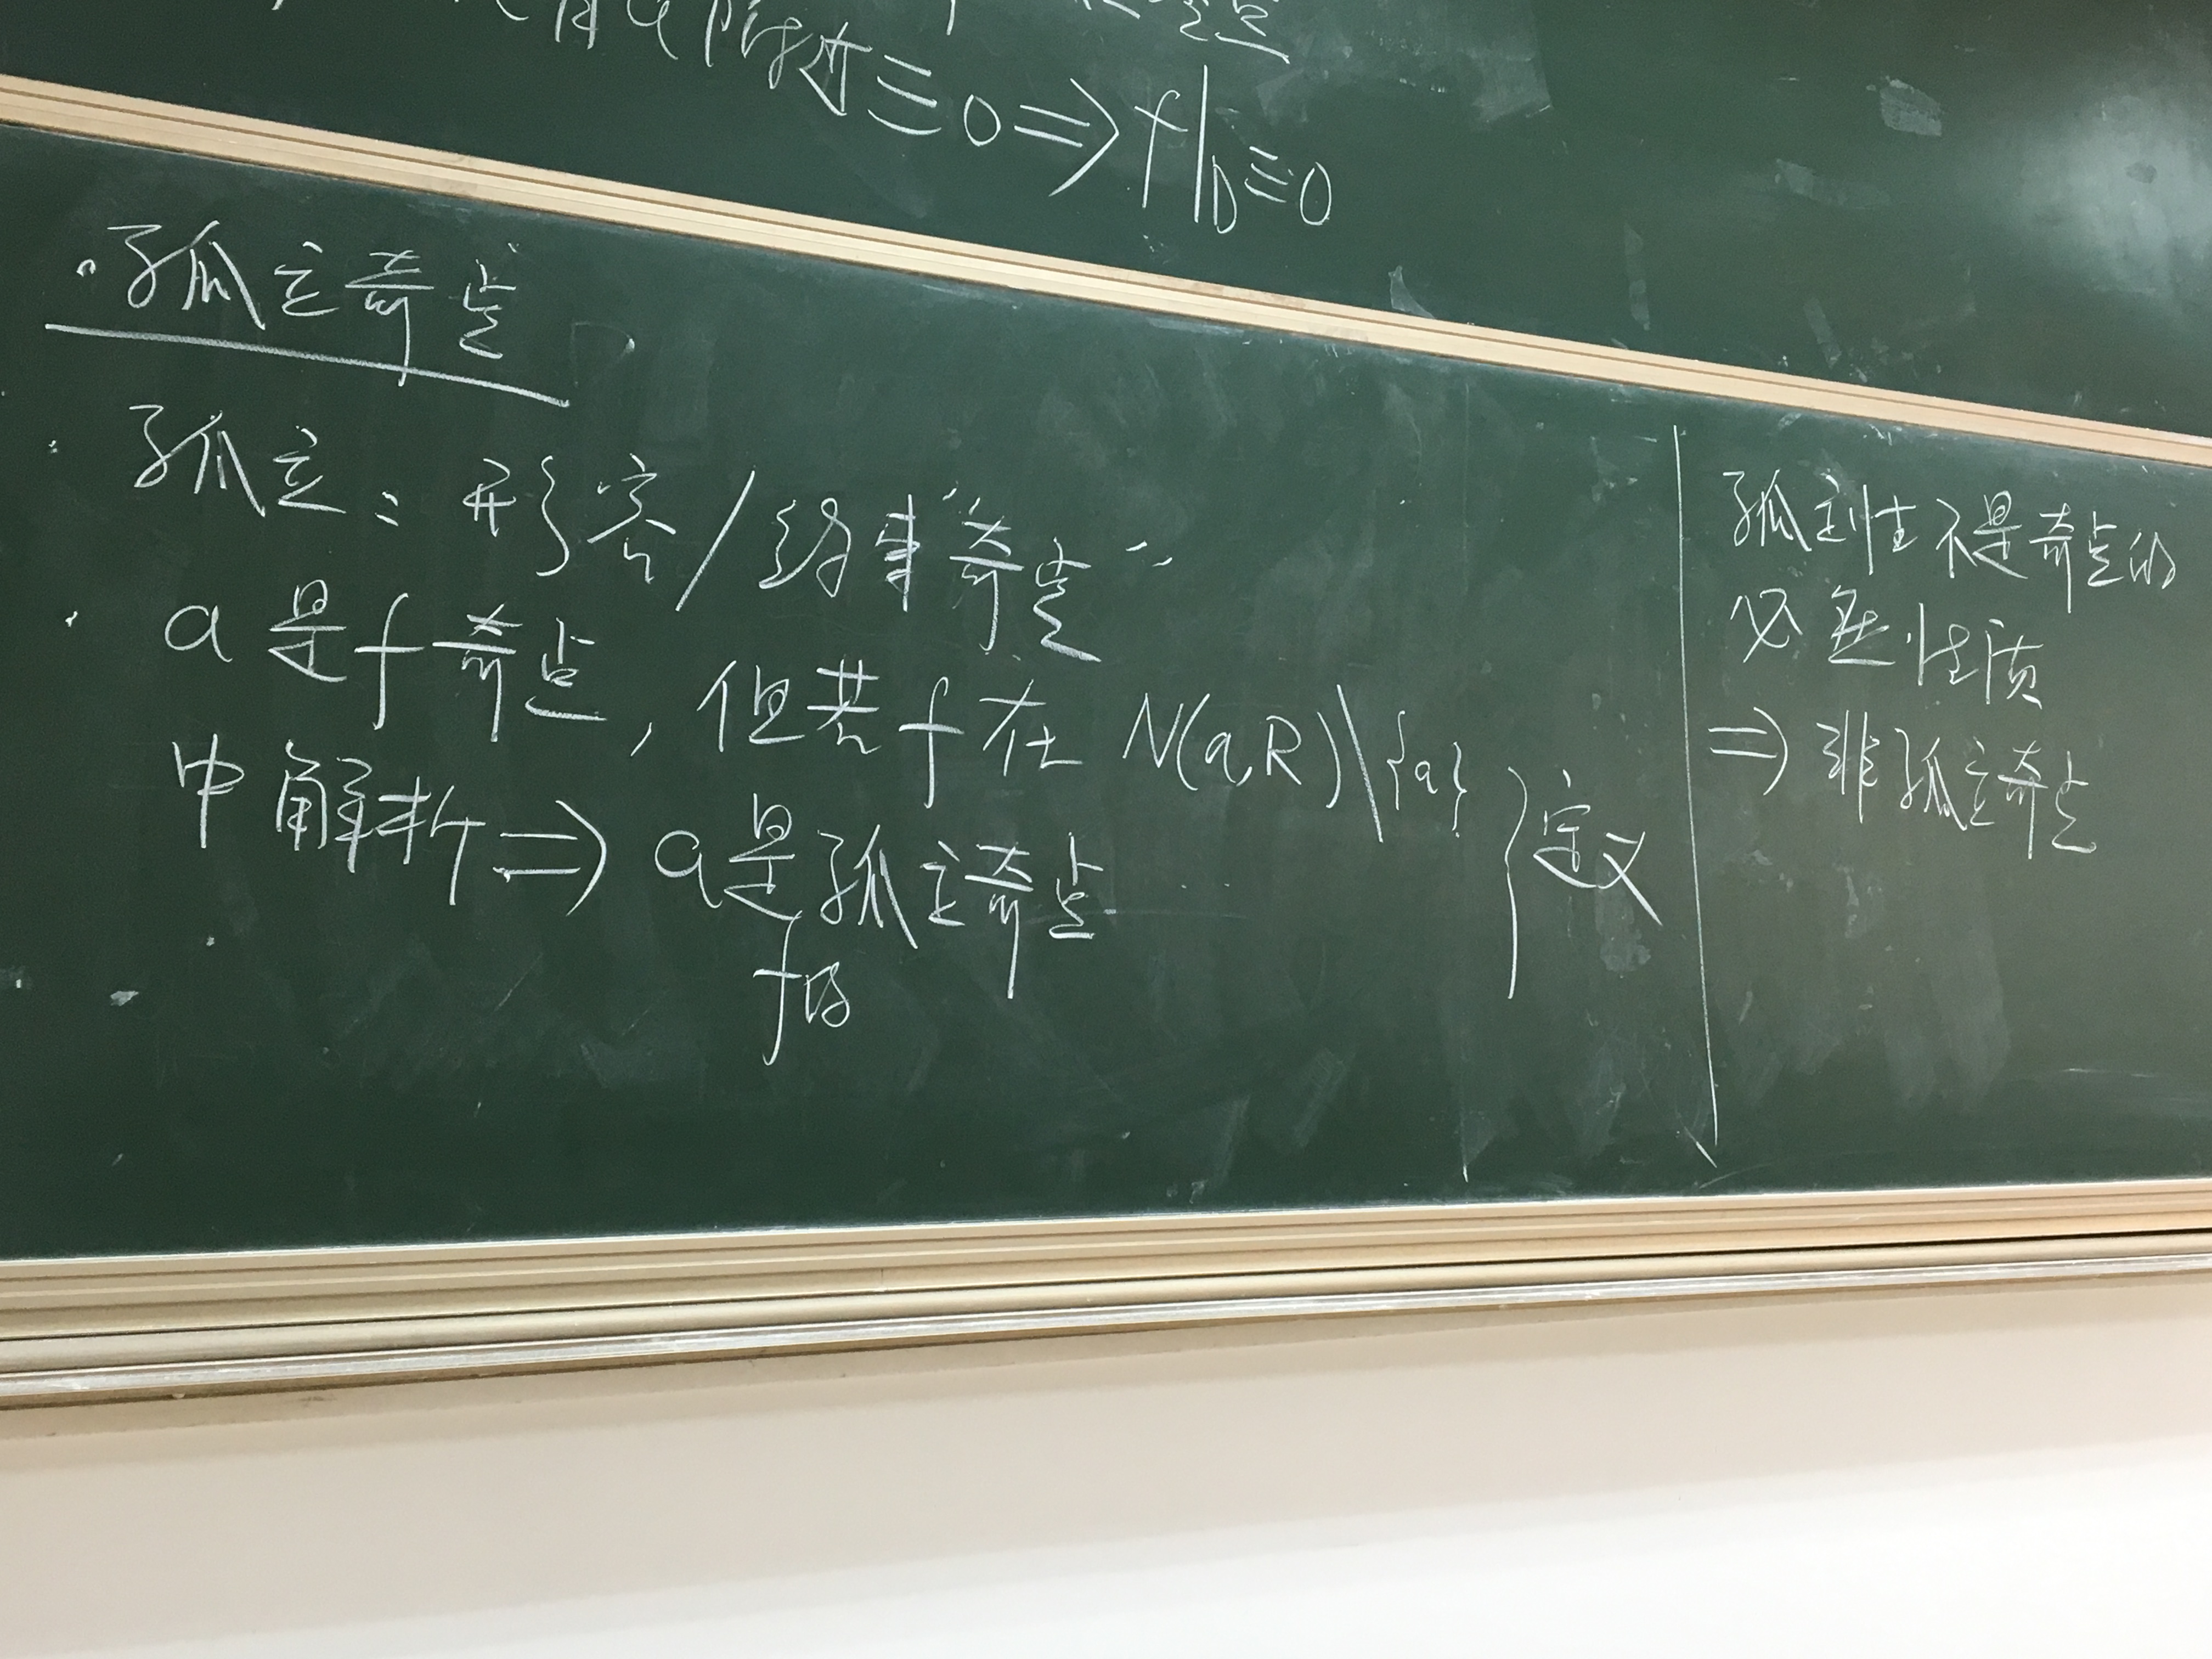 附近≡0⇒f|_D≡0
·孤立奇点
孤立：形容/约束“奇点”
a是f奇点，但若f在 N(a,R)\{a}
中解析⇒a是孤立奇点
f的
}定义
孤立性不是奇点的
必然性质
⇒非孤立奇点